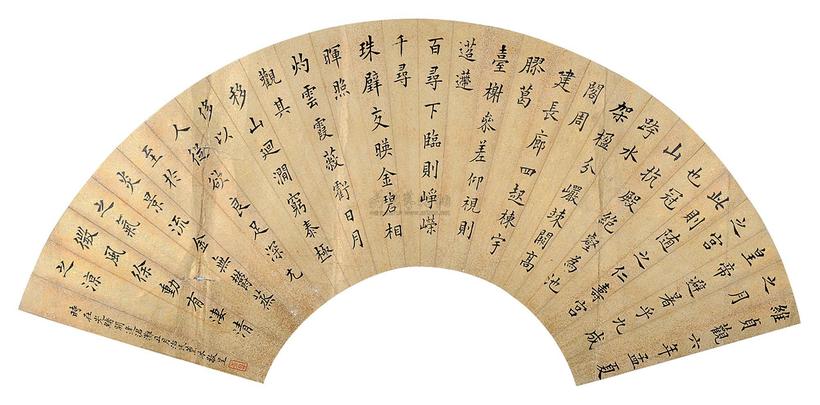 維貞觀六年孟夏
之月
皇帝避暑乎九成
之宮
此則随之仁壽宮
也冠
山抗殿絕壑為池
跨水
架楹分巖竦闕高
閣周
建長廊四起棟宇
膠葛
臺榭參差仰視則
迢遰
百尋下臨則崢嶸
千尋
珠璧交暎金碧相
暉照
灼雲霞蔽虧日月
觀其
移山迴澗窮泰極
侈以
人從欲良足深尤
至於
炎景流金無鬱蒸
之氣
微風徐動有淒清
之涼
時在光緒閼逢涒灘且月